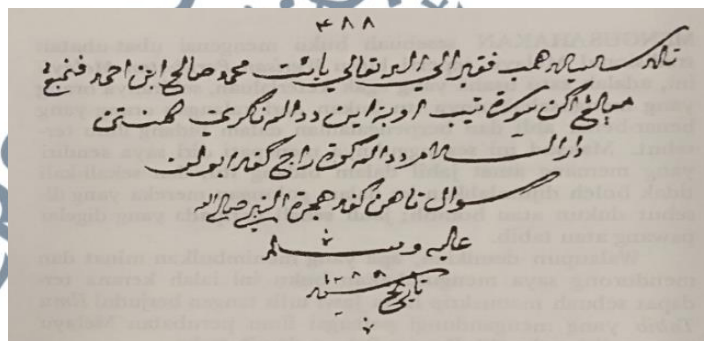 ۴۸۸
تله سلسي همب فقير الي الله تعالي يائيت محمد صالح ابن احمد فنمبڠ
اكن سورة تيب اوبة اين ددالم نڬري كلنتن
دار السلام ددالم كوت راج كفد بولن
شوال تاهن كفد هجرة النبي صلى الله
عليه وسلم
تاريخ سنة ١٢٨٨